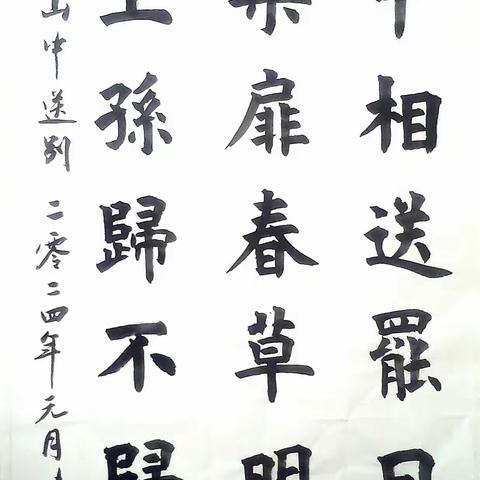 中相送罷日
柴扉春草明
王孫歸不歸
山中送别 二零二四年元月